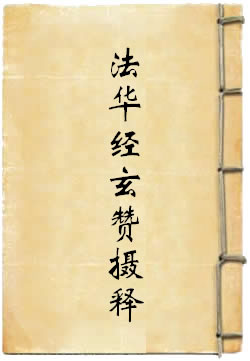 法华经玄赞摄释